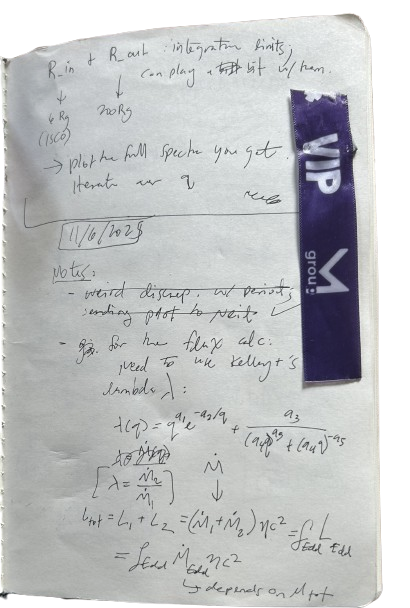 R_in & R_out : integration limits,
can play a bit w/ them.
↓ ↓
6 Rg 200Rg
(ISCO)
→ plot the full spectra you get.
iterate over q
11/6/2025
Notes:
- weird discrep. w/ periods,
sending plot to
- for the flux calc:
need to use Kelley+'s
lambda λ:
λ(q) = q^{a_1} e^{-a_2/q} + a_3 / ((a_4 q)^{a_5} + (a_4 q)^{-a_5})
[λ = Ṁ_2/Ṁ_1] Ṁ
↓
L_tot = L_1 + L_2 = (Ṁ_1 + Ṁ_2) ηc² = f_Edd L_Edd
= f_Edd Ṁ_Edd ηc²
↳ depends on M_tot
VIP
M
group